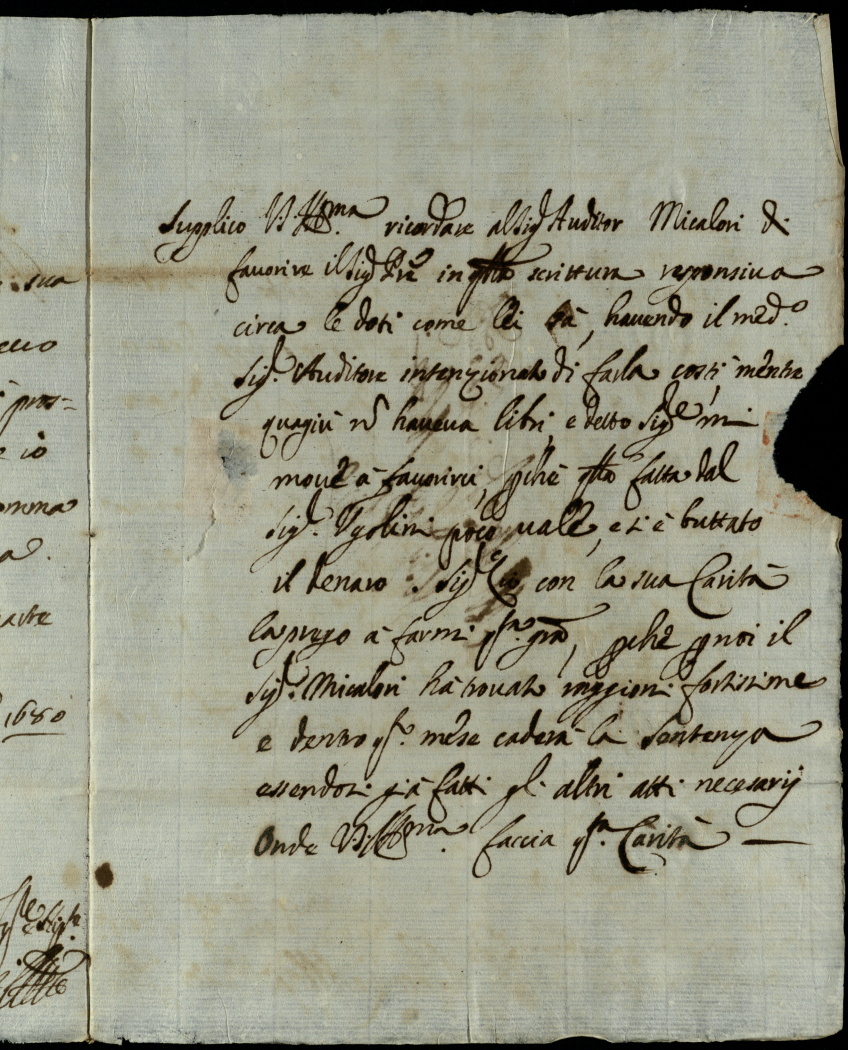 sua
ecco
pros=
e io
omma
a.
parte
1680
Supplico V.S. Ill.ma ricordare al Sig.r Auditor Micalori di
favorire il Sig.r in q.ta scrittura responsiva
circa le doti come lei sà, havendo il med.o
Sig.r Auditore intenzionato di farla costì, mentre
quagiù nō haveva libri, e detto Sig.re mi
move à favorirci, p̱che q.ta fatta dal
Sig.r Ugolini poco vale, e si è buttato
il denaro Sig. con la sua Carità
la prego à farmi q.sta gra, p̱che p̱ noi il
Sig.r Micalori hà trovato raggioni fortissime
e dentro q.sto mese caderà la sentenza
essendosi già fatti gl'altri atti necesarij
Onde V.S. Ill.ma faccia q.sta Carità —